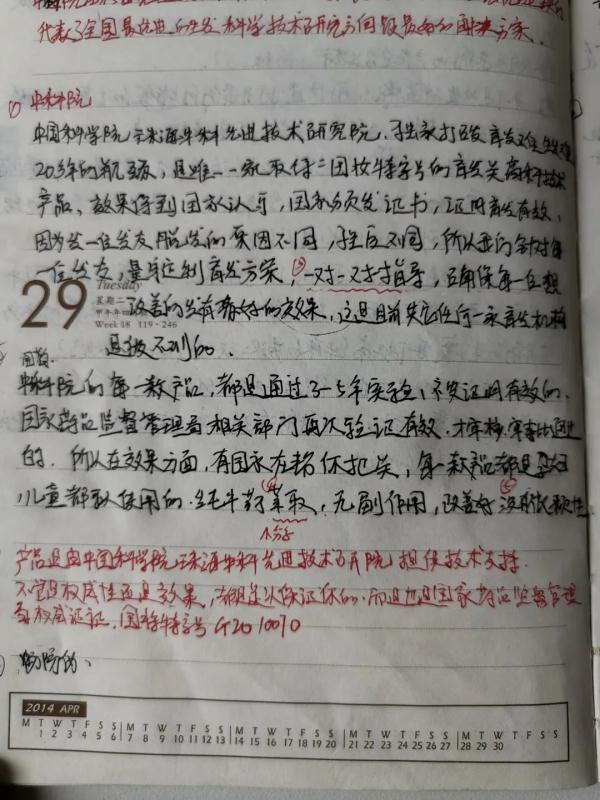 代表了全国最先进的生发科学技术研究方向跟最好的解决方案.
① 中科院
中国科学院珠海中科先进技术研究院.独家打破育发难
20多年的瓶颈,是唯一一家取得二国妆特字号的育发类高科技
产品、效果得到国家认可,国家颁发证书,证明育发有效,
因为每一位发友脱发的原因不同,所以要针对每
一位发友,量身定制育发方案,③一对一对指导,确保每一位想
29
Tuesday
星期二
Week 18 119·246
改善的发有都好的效果,这是目前其它任何一家育发机构
是做不到的.
国货.
中科院的每一款产品,都是通过3-5年实验,证明有效的.
国家药品监督管理局相关部门再次验证有效.才审核审批
的.所以在效果方面,有国家在替你把关,每一款产品都是
儿童都可以使用的.纯牛药④萃取,无副作用,改善好⑤没有依赖性
小分子
产品是由中国科学院珠海中科先进技术研究院担保技术支持.
不管是权威性还是效果,都是可以保证你的.而且也是国家药品监督管理
局权威证证,国妆特字号 G2010070
2014 APR
M T W T F S S M T W T F S S M T W T F S S M T W T F S S M T W T F S S
1 2 3 4 5 6 7 8 9 10 11 12 13 14 15 16 17 18 19 20 21 22 23 24 25 26 27 28 29 30